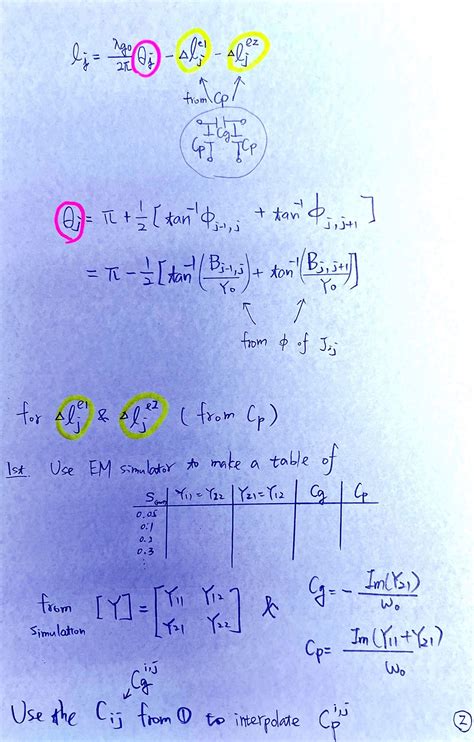 l_j = λ_g0/2π θ_j - Δl_j^e1 - Δl_j^e2
from Cp
Cg
Cp Cp
θ_j = π + 1/2 [tan⁻¹ ϕ_j-1,j + tan⁻¹ ϕ_j,j+1]
= π - 1/2 [tan⁻¹(B_j-1,j/Y₀) + tan⁻¹(B_j,j+1/Y₀)]
from ϕ of J_ij
for Δl_j^e1 & Δl_j^e2 (from Cp)
1st. Use EM simulator to make a table of
S Y11 = Y22 Y21 = Y12 Cg Cp
0.05
0.1
0.2
0.3
⋮
from simulation [Y] = [Y11 Y12
Y21 Y22] & Cg = - Im(Y21)/ω₀
Cp = Im(Y11+Y21)/ω₀
Cg^i,j
Use the Cij from ① to interpolate Cp^i,j
②